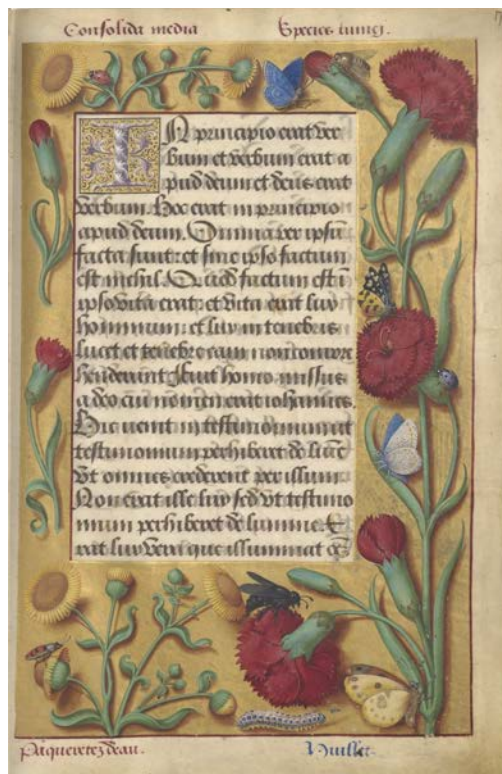 Consolida media
Species tunici.
IN principio erat ver
bum et verbum erat a
pud deum et deus erat
verbum. Hoc erat in principio
apud deum. Omnia per ipsū
facta sunt: et sine ipso factum
est nichil. Quod factum est ī
ipso vita erat: et vita erat lux
hominum: et lux in tenebris
lucet et tenebre eam non compre
henderunt. Fuit homo missus
a deo cui nomen erat iohannes.
Hic venit in testimonium ut
testimonium perhiberet de
Vt omnes crederent per illum
Non erat ille lux sed vt testimo
nium perhiberet de lumine. E
rat lux vera que illuminat
Paqueretez deau.